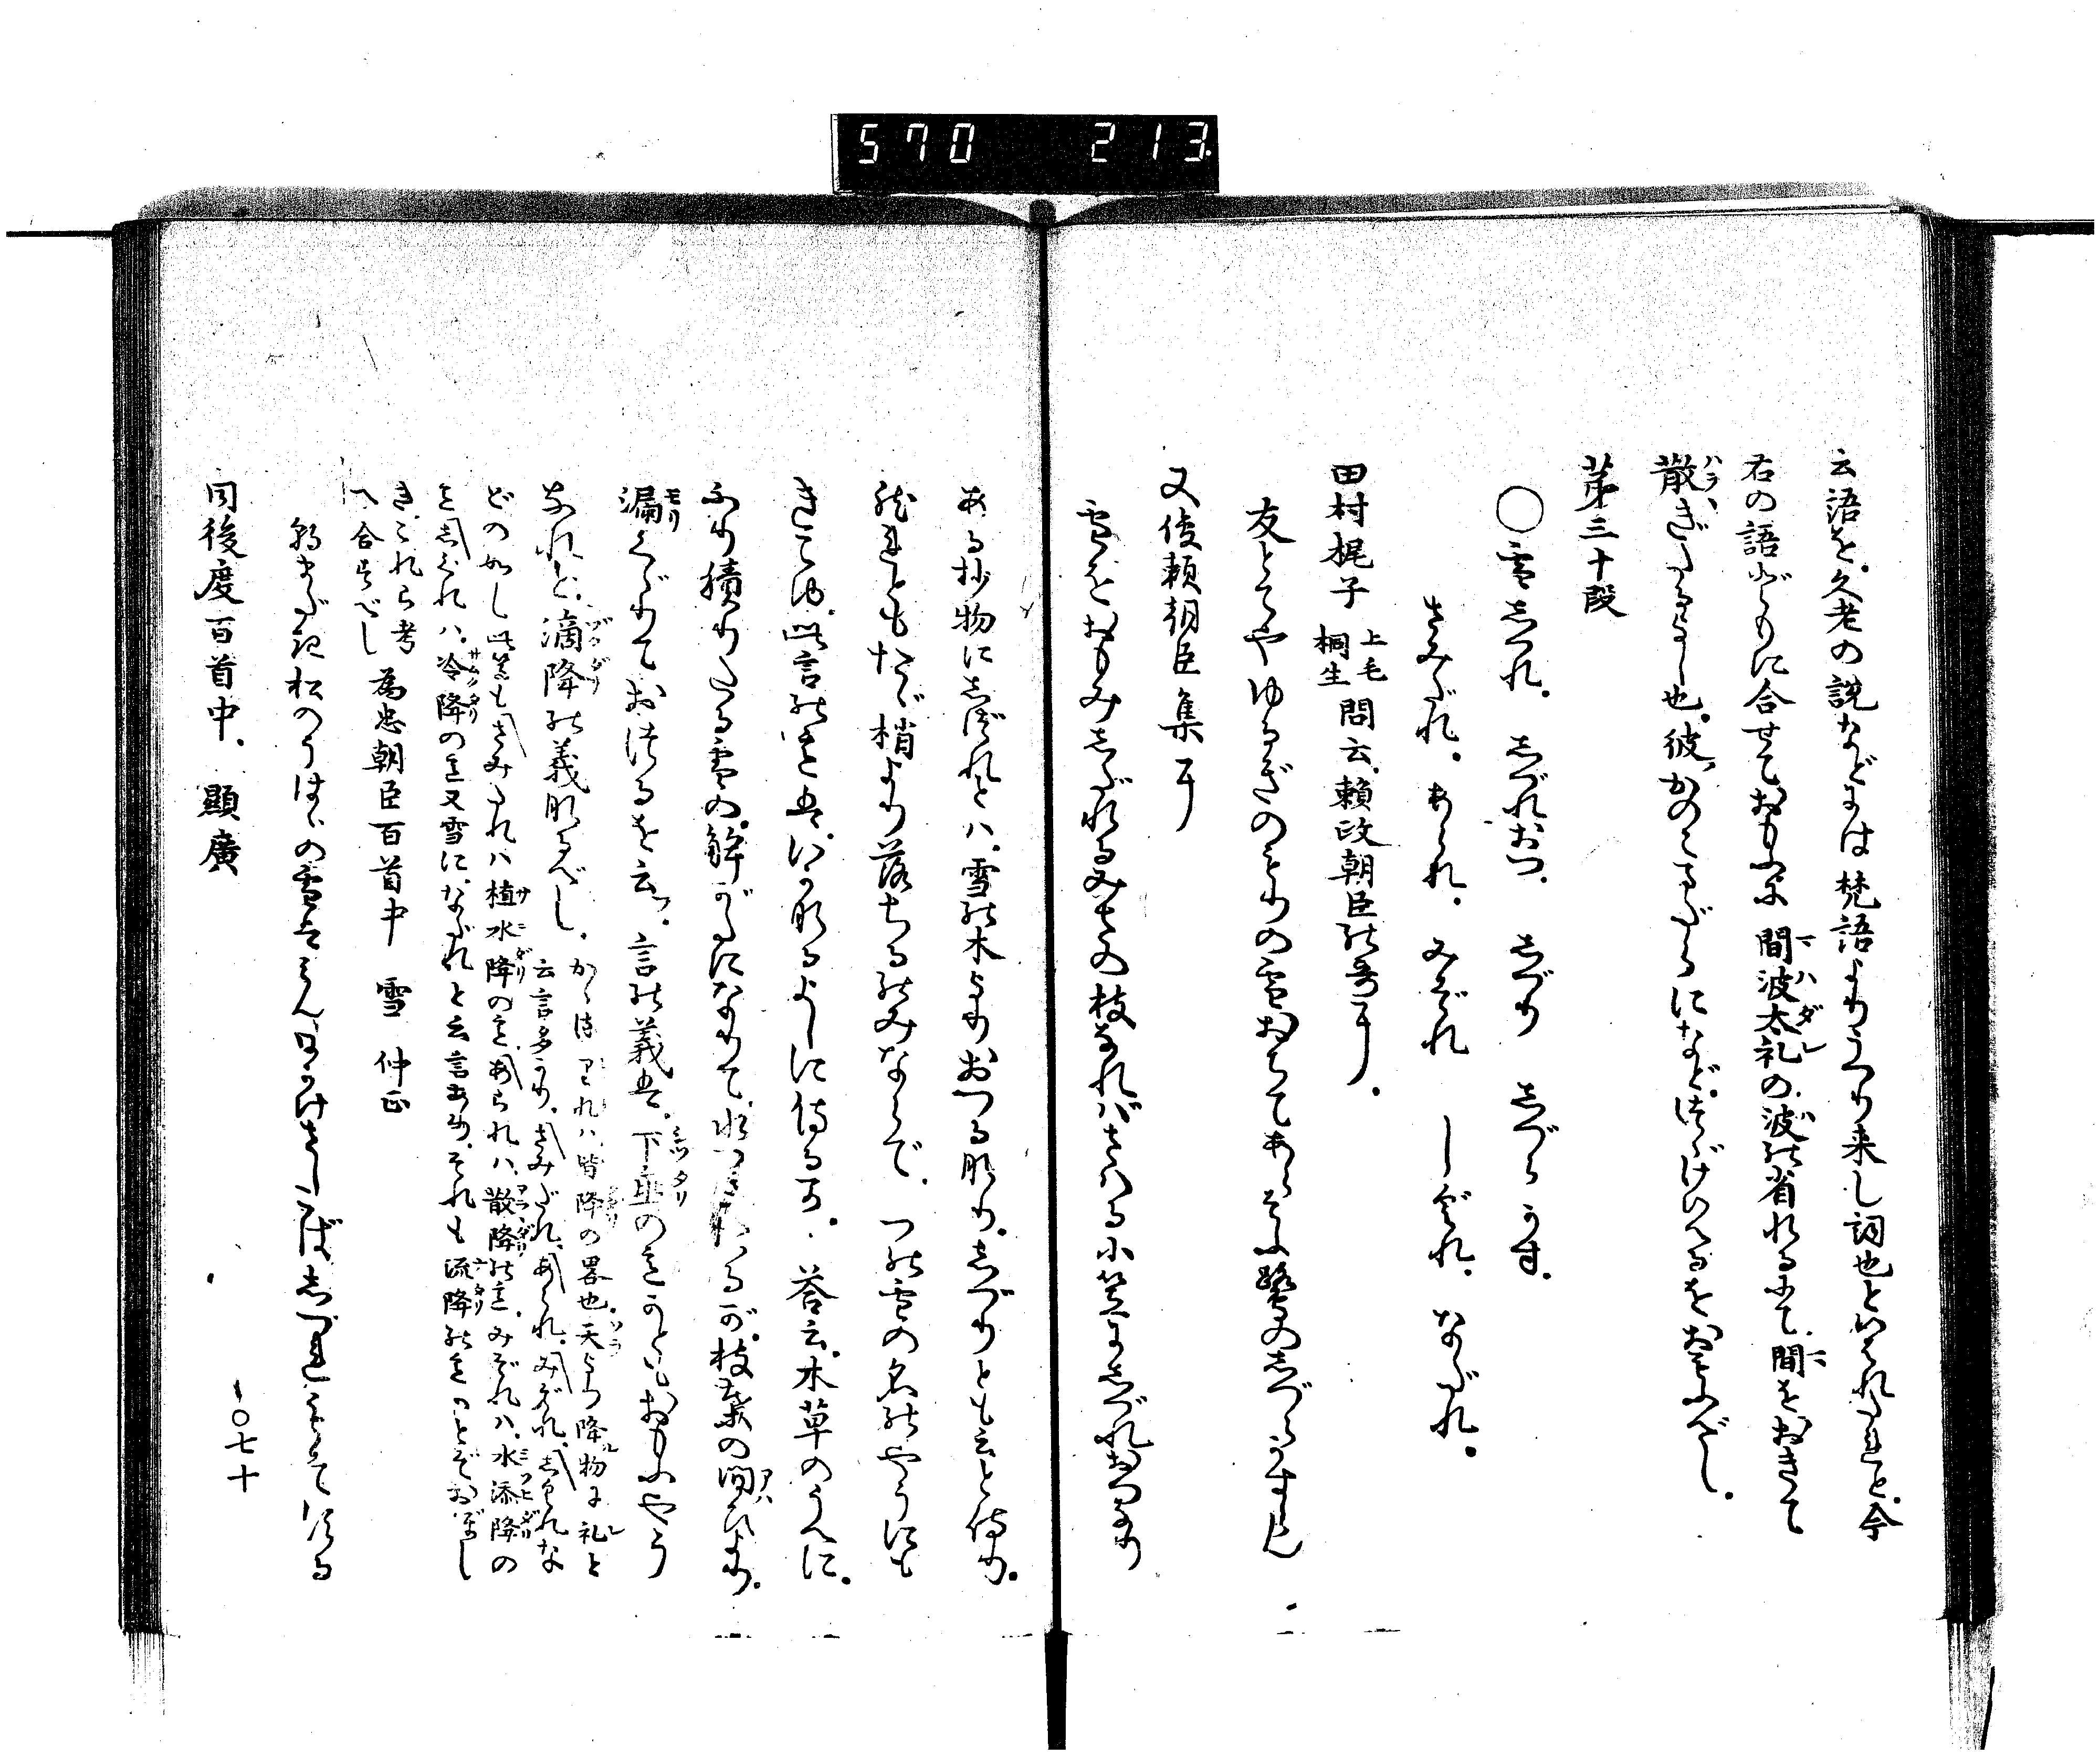 570 213
云語を、久老の説などには梵語よりうつり来し詞也といはれたれど、今
右の語どもに合せておもふに間波太礼の、波の省れるにて、間をおきて
散ぎたるよし也、彼かのこまだらになど、つゞけいへるをおもふべし、
第三十段
○雪しづれ、しづれおつ、しづり しづらかす、
さみだれ、あられ、みぞれ しぐれ、なだれ、
田村梶子 上毛桐生 問云、頼政朝臣の哥に、
友とてやゆるぎのもりの雪おちてあらそふ鷺のしづらかすらん
又俊頼朝臣集に
雪をおもみしづれるみちの枝なればさはる小笠にしづれおつなり
ある抄物にしづれとハ、雪の木よりおつる也、しづりとも云と侍り、
然れどもたゞ梢より落ちるのみならで、つの雪の名のやうにも
きこゆ、此言の意は、いかなるよしに侍るか、答云、木草のうへに、
ふり積りたる雪の、解がたになりて、枝葉の間ひより、
漏くだりておつるを云つ、言の義は、下垂の意かともおもふやう
なれど、滴降の義なるべし、かゝる れハ皆降の畧也、天より降物に礼と
云言多かり、さみだれ、あられ、みぞれ、しぐれな
どの如し此等もさみだれハ植水降の意、あられハ、散降の意、みぞれハ、水添降の
意しぐれハ、冷降の意又雪になだれと云言あり、それも流降の意かとぞおぼし
き、これら考
へ合すべし 為忠朝臣百首中 雪 仲正
朝まだき松のうはゞの雪はみん日かげさしこばしづれもぞする
同後度百首中、顕廣
一〇七十